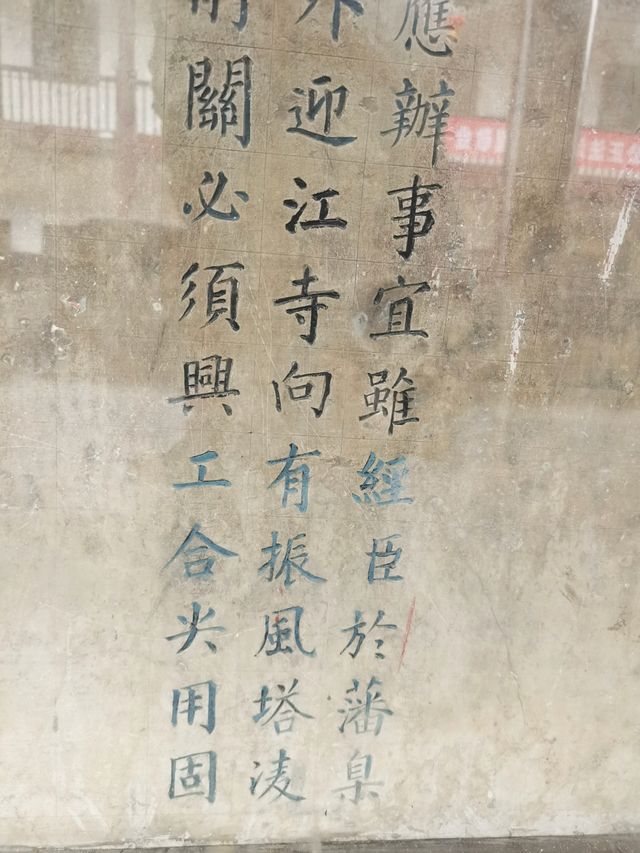 應辦事宜雖經臣於藩臬
外迎江寺向有振風塔凌
關必須興工合尖用固